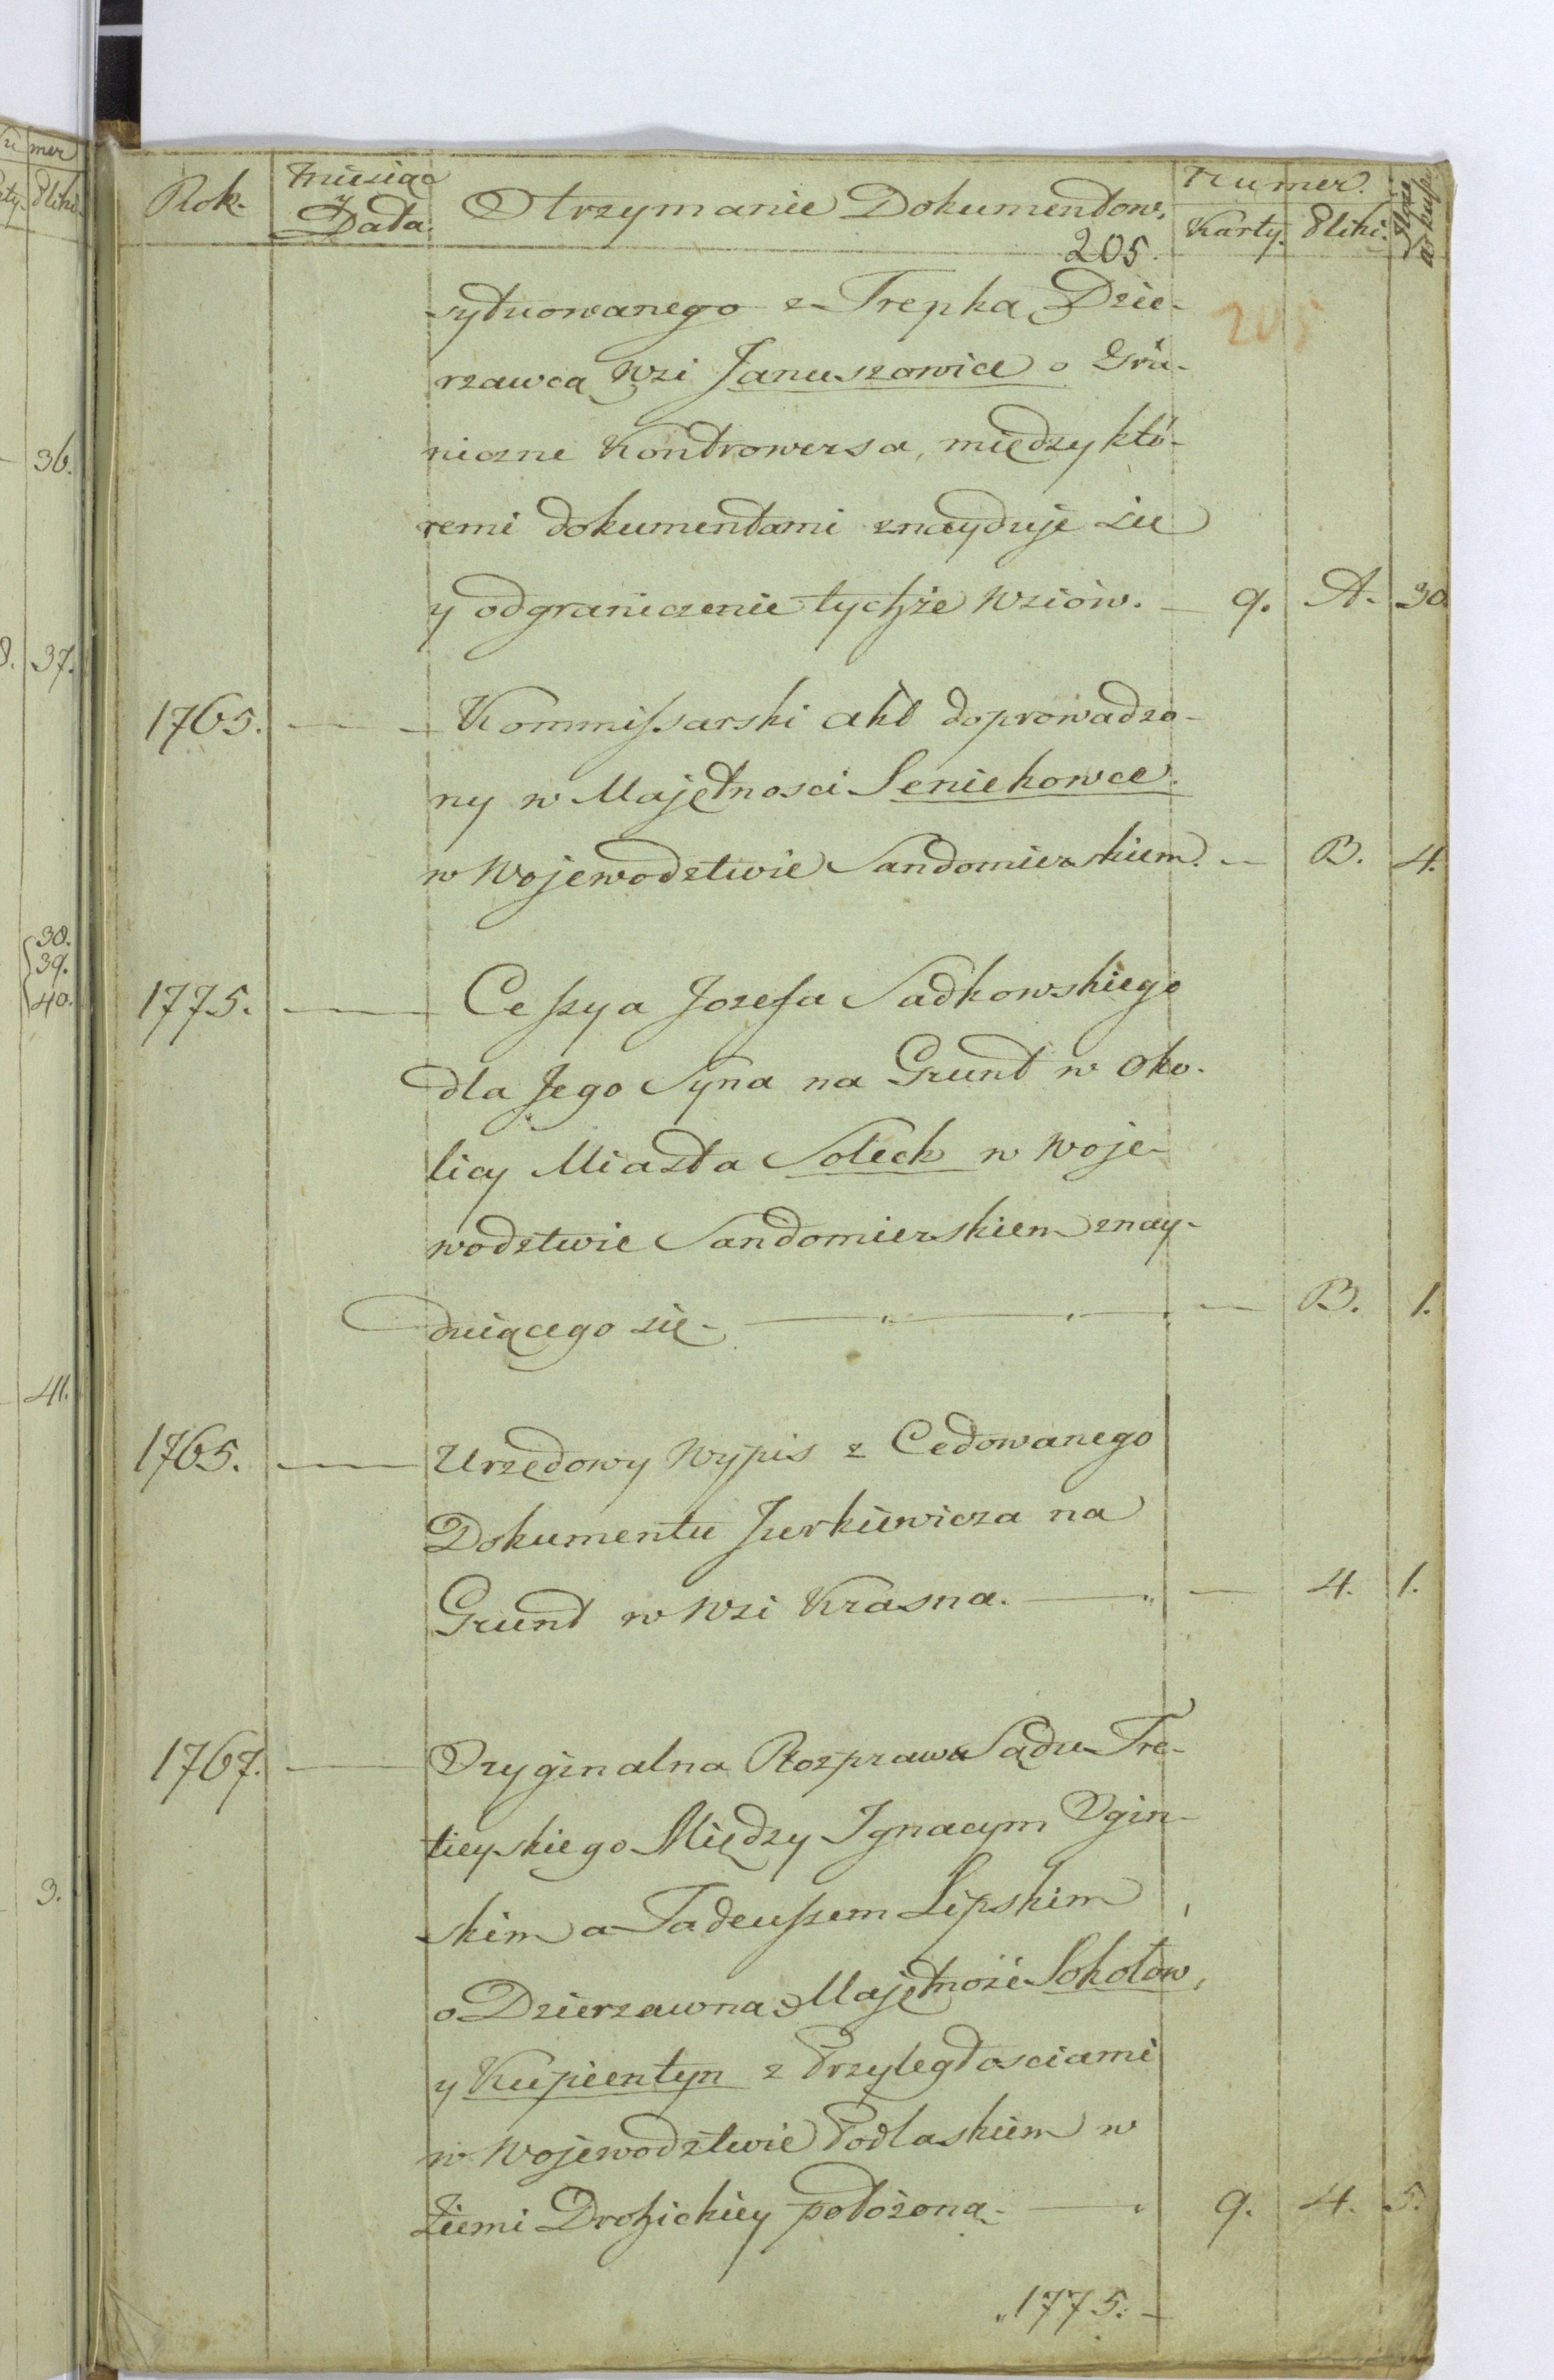 mer
Pliki.
36.
37.
38.
39.
40.
41.
3.
Rok. Miesiąc y Data. Otrzymanie Dokumentow. Numer. Karty. Pliki. Ilość arkusz
205.
205
sytuowanego z Trepka Dzie-
rzawcą Wsi Januszowice o Gra-
niczne Kontrowersa, między któ-
remi dokumentami znayduje sie
y odgraniczenie tychże Wsiów. — 9. A. 30.
1765. — — Kommissarski akt doprowadzo-
ny w Majętnosci Seniehowce.
w Wojewodztwie Sandomierskiem. — B. 4.
1775. — Cessya Jozefa Sadkowskiego
dla Jego Syna na Grunt w oko-
licy Miasta Soleck w Woje-
wodztwie Sandomierskiem znay-
duiącego się. — " — " — — B. 1.
1765. — Urzędowy Wypis z Cedowanego
Dokumentu Jurkiewicza na
Grunt w Wsi Krasna. — " — 4. 1.
1767. — Oryginalna Rozprawa Sądu Tre-
tieyskiego Między Ignacym Ogin-
skim a Tadeuszem Lipskim
o Dzierzawną Majętność Sokołow,
y Kupientyn z Przyległosciami
w Wojewodztwie Podlaskiem w
Ziemi Drohickiey położona. — " 9. 4. 5.
"1775. —